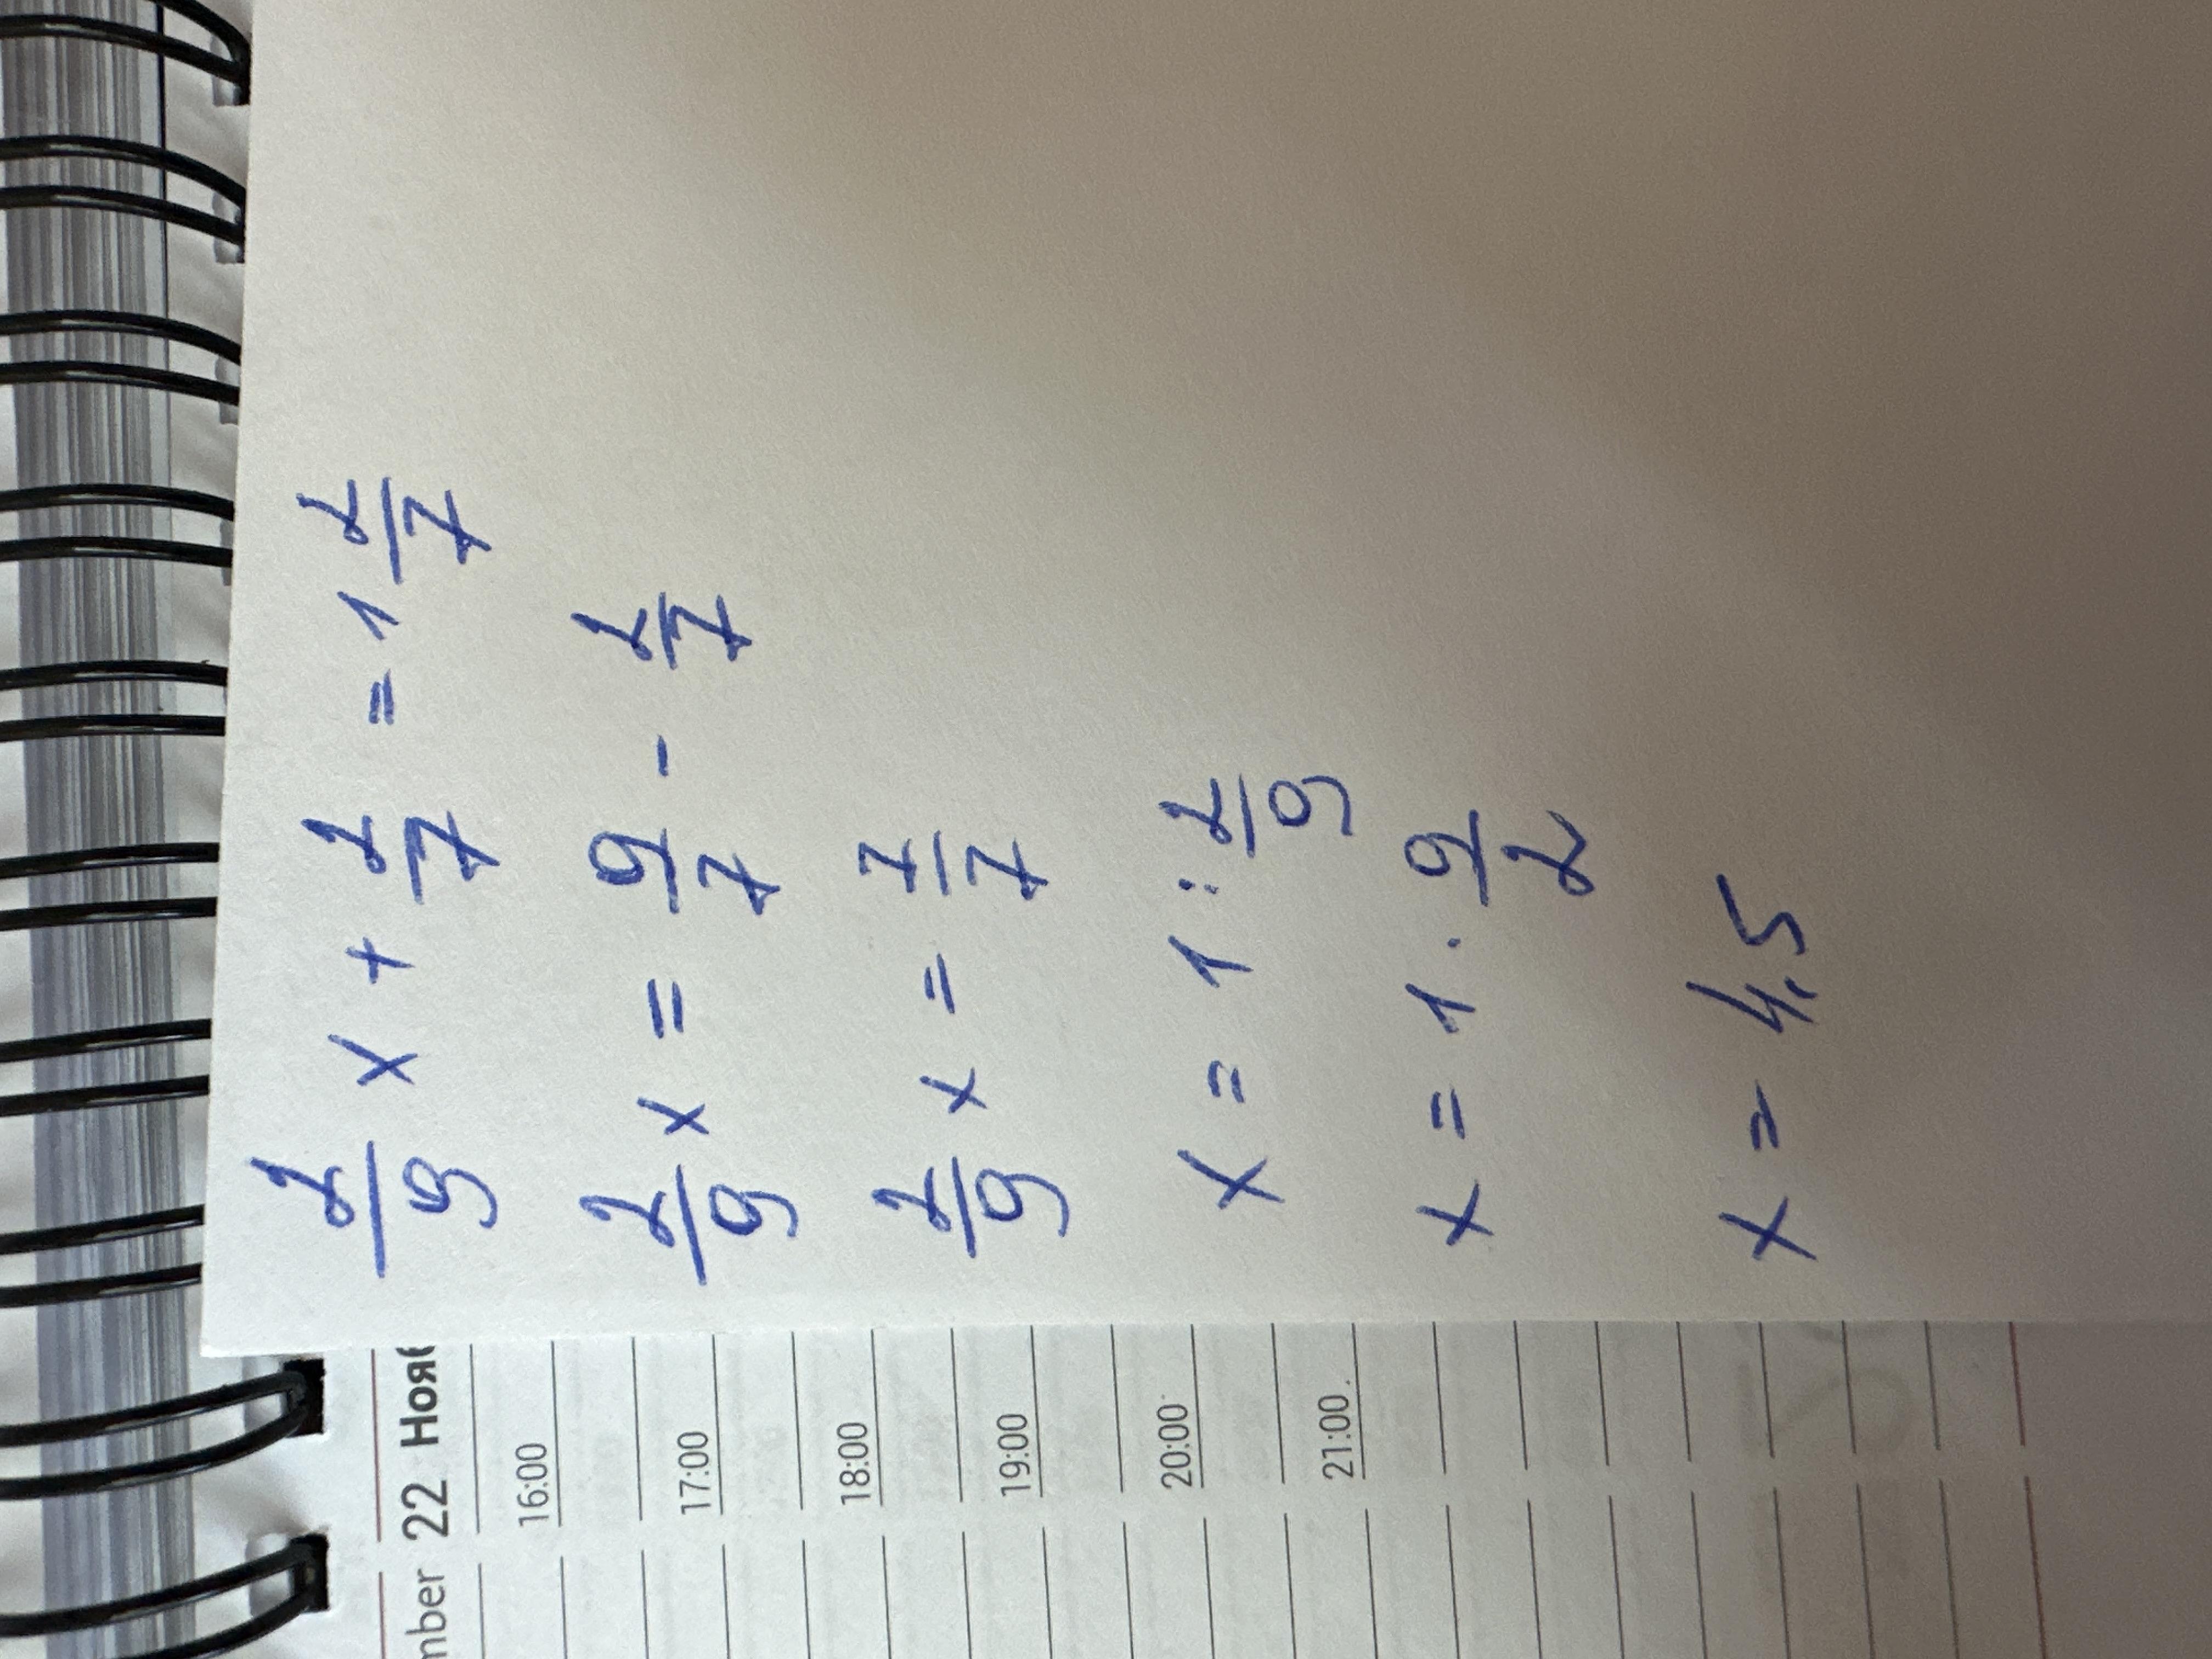 2/9 x + 2/7 = 1 2/7
2/9 x = 9/7 - 2/7
2/9 x = 7/7
x = 1 : 2/9
x = 1 · 9/2
x = 4,5
mber 22
16:00
17:00
18:00
19:00
20:00
21:00